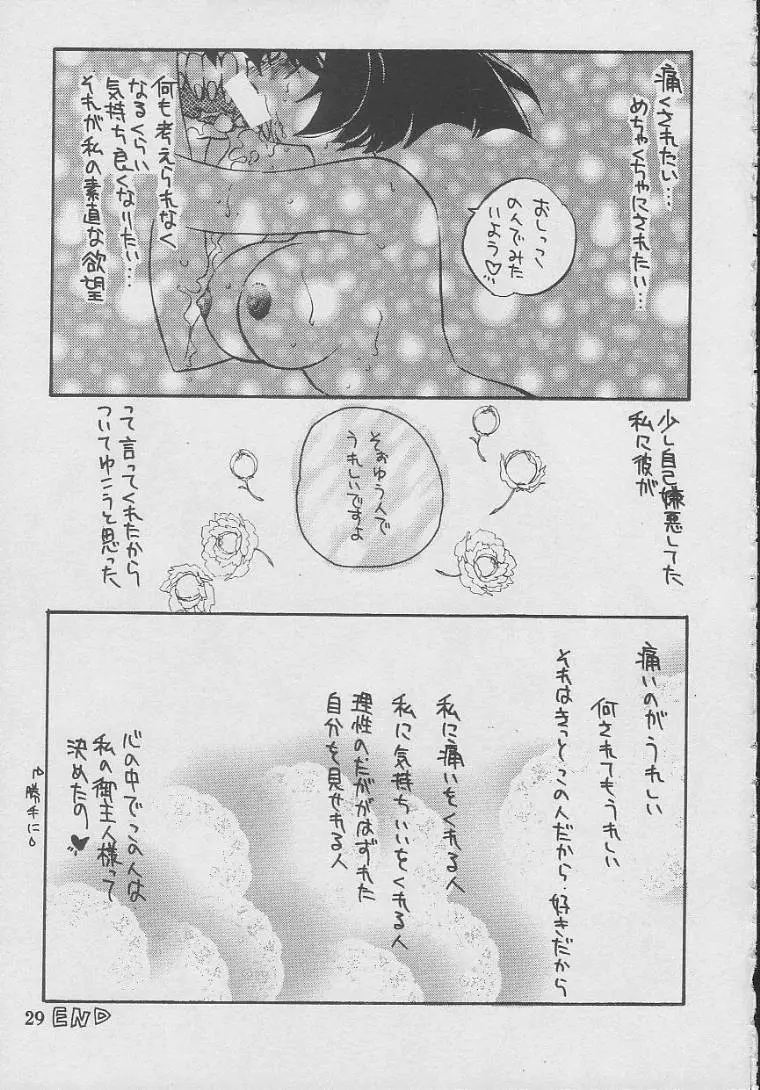 痛くされたい…
めちゃくちゃにされたい…
おしっこ
のんでみた
いよう♡
何も考えられなく
なるくらい
気持ち良くなりたい…
それが私の素直な欲望
少し自己嫌悪してた
私に彼が
そおゆう人で
うれしいですよ
って言ってくれたから
ついてゆこうと思った
痛いのがうれしい
何されてもうれしい
それはきっとこの人だから・好きだから
私に痛いをくれる人
私に気持ちいいをくれる人
理性のたががはずれた
自分を見せれる人
心の中でこの人は
私の御主人様って
決めたの♥
勝手に
29 END